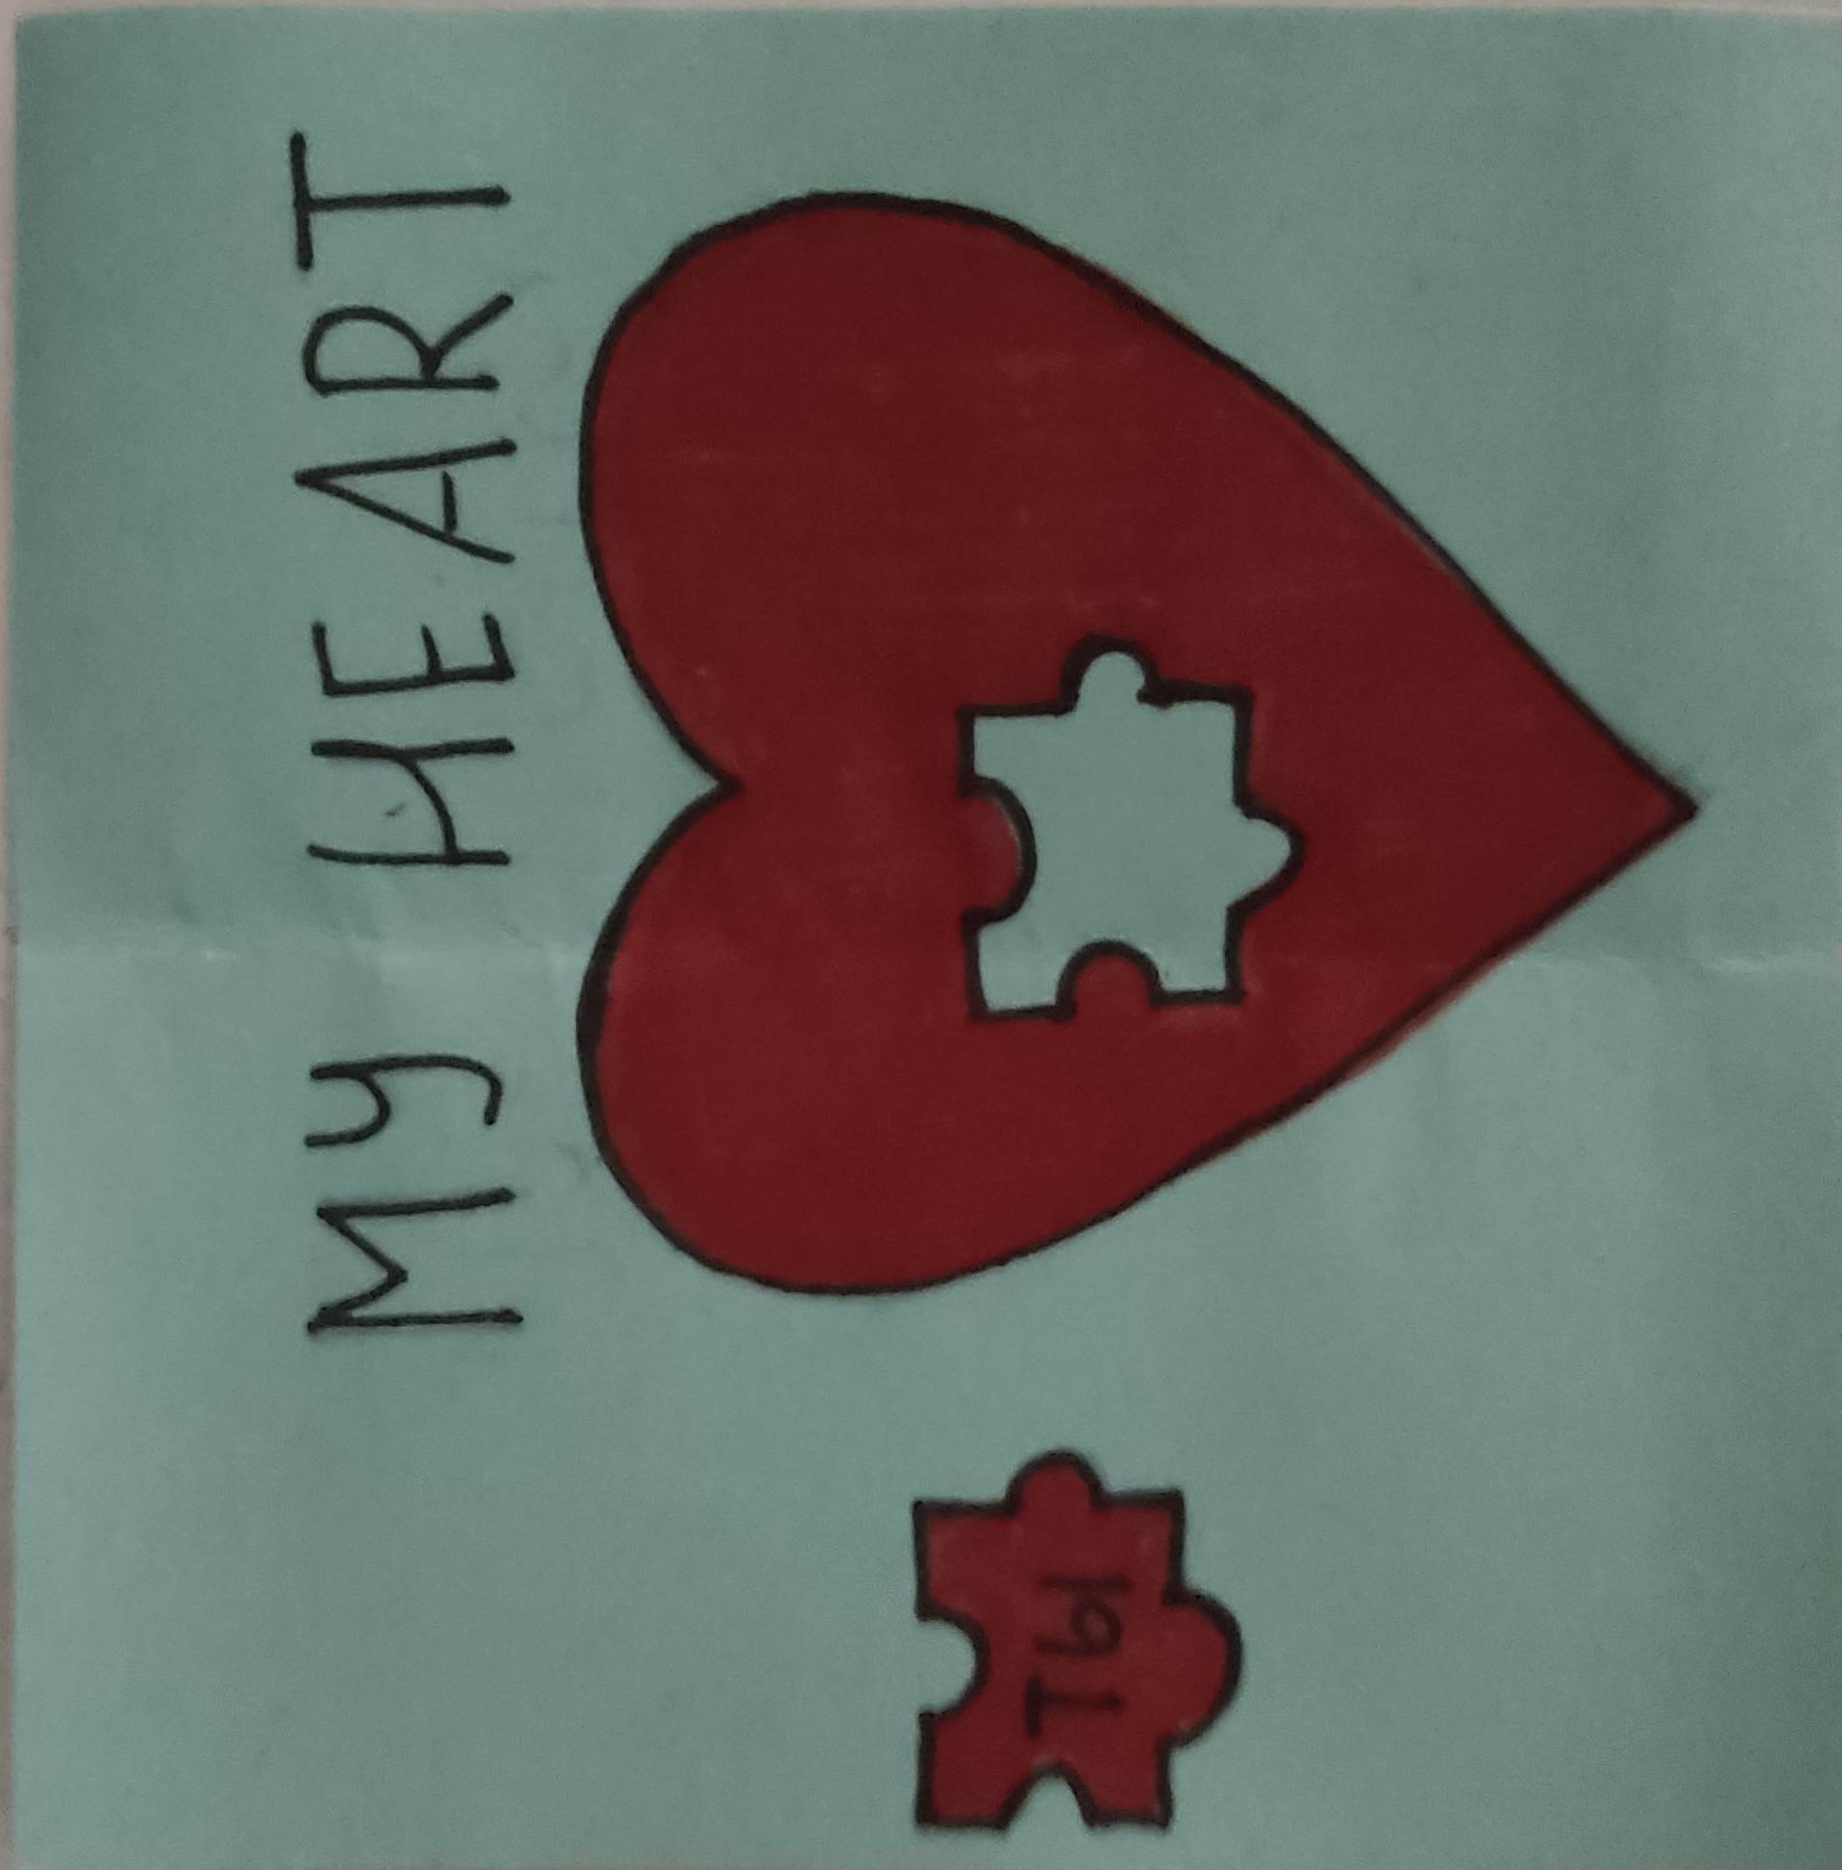 MY HEART
ТЫ